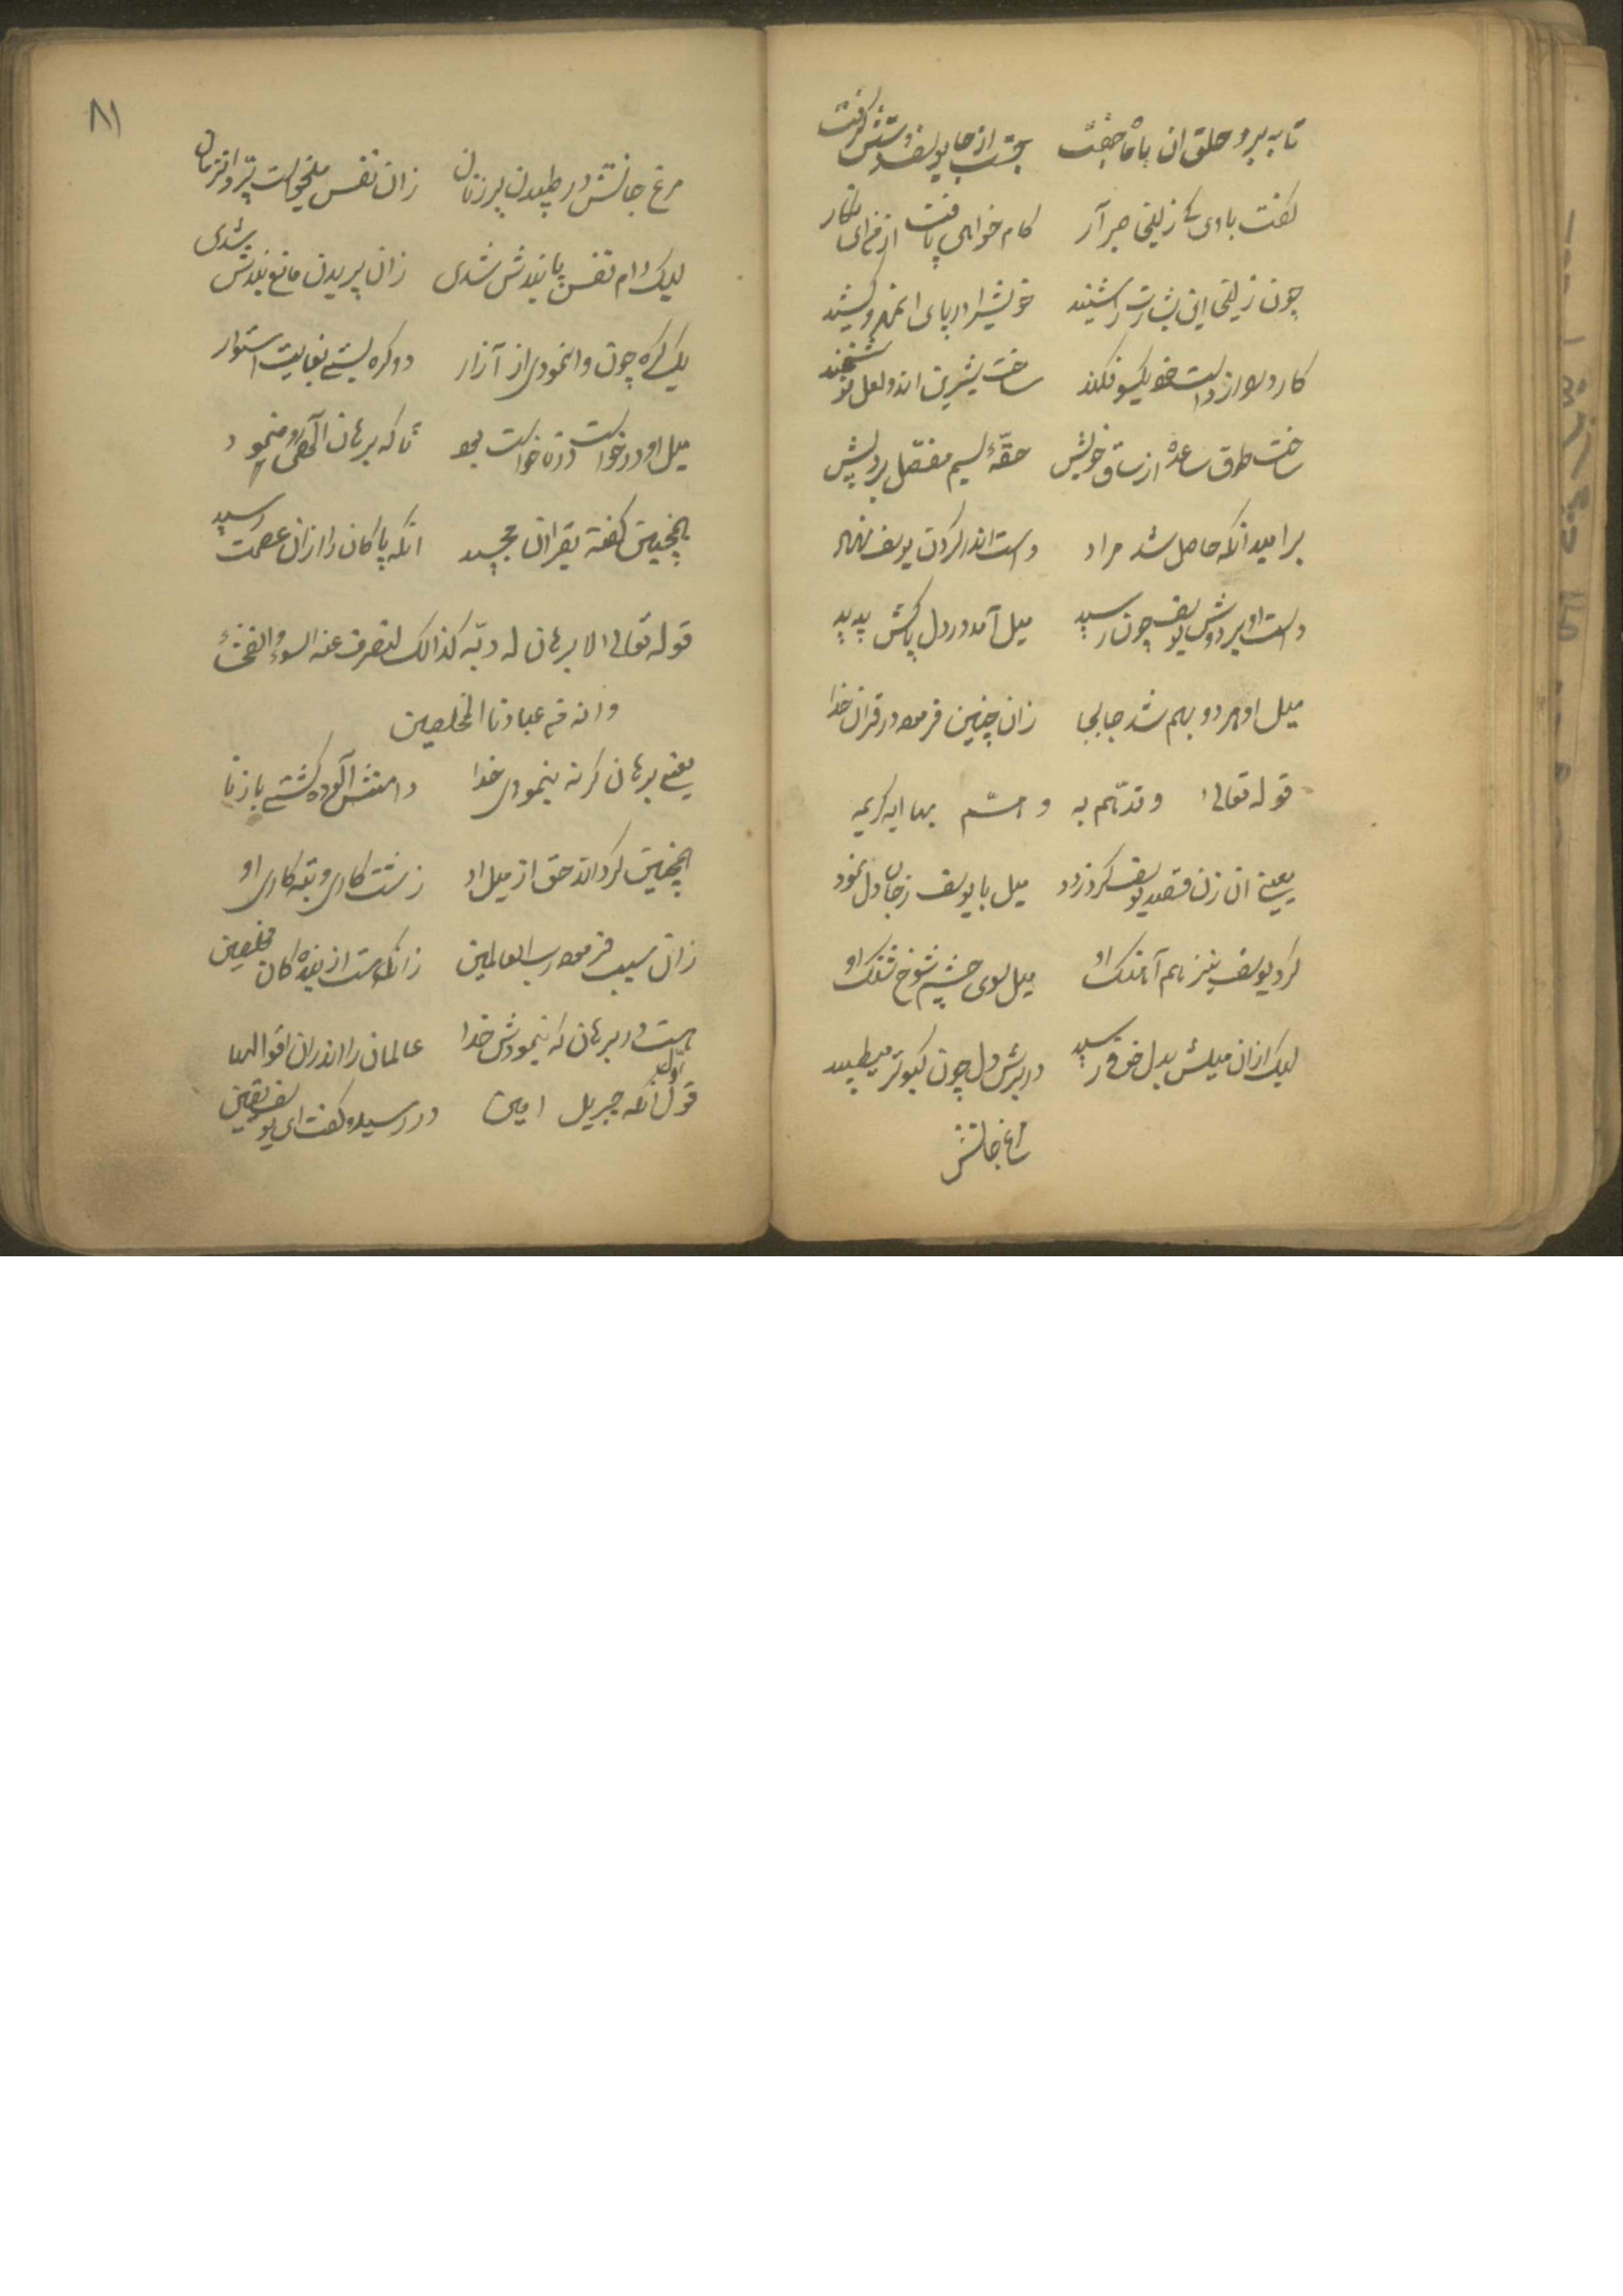 تا به برد حلق ان با ماه جفت    بجست از جا یوسف و دستش گرفت
گفت با وی کے زلیخی صبر آر    کام خواهی یافت از من ای نگار
چون زلیخی این بشارت را شنید    خویشرا در پای ان مهرو کشید
کارد را از دست خود یکسو فکند    ساخت شیرین اندو لعل نوشخند
ساخت طوق ساعد از ساق خویش    حقهٔ سیم مفصل برد پیش
بر امید انکه حاصل شد مراد    دست اندر گردن یوسف نهاد
دست او بر دوش یوسف چون رسید    میل آمد در دل پاکش پدید
میل او هر دو بهم شد جابجا    زان چنین فرمود در قران خدا
قوله تعالی وقد همّت به و همّ بها ایه کریمه
یعنی ان زن قصد یوسف کرد زود    میل با یوسف ز جان و دل نمود
کرد یوسف نیز هم آهنک او    میل سوی چشم شوخ شنک او
لیک ازان میلش بدل خوف رسید    در برش دل چون کبوتر میطپید
مرغ جانش
۸۱
مرغ جانش در طپیدن پر زنان    زان قفس میخواست پرواز زمان
لیک دام نفس پابندش شدی    زان پریدن مانع بندش شدی
یک گره چون وانمودی از آزار    دو گره بستے بغایت استوار
میل او در خواست در ناخواست بود    تا که برهان آلهی رو نمود
اینچنین گفته بقران مجید    انکه پاکان را ازان عصمت رسید
قوله تعالی لا برهان له ربّه کذالک لنصرف عنه السوء و الفحشاء
و انه من عبادنا المخلصین
یعنی برهان گر نه بنمودی خدا    دامنش آلوده گشتے با زنا
اینچنین گرداند حق از میل او    زشت کاری و تبه کاری او
زان سبب فرمود رب العالمین    زانکه هست از بنده کان مخلصین
هست در برهان که بنمودش خدا    عالمان را اندران اقوالها
قول اول انکه جبریل امین    در رسید و گفت ای یوسف یقین